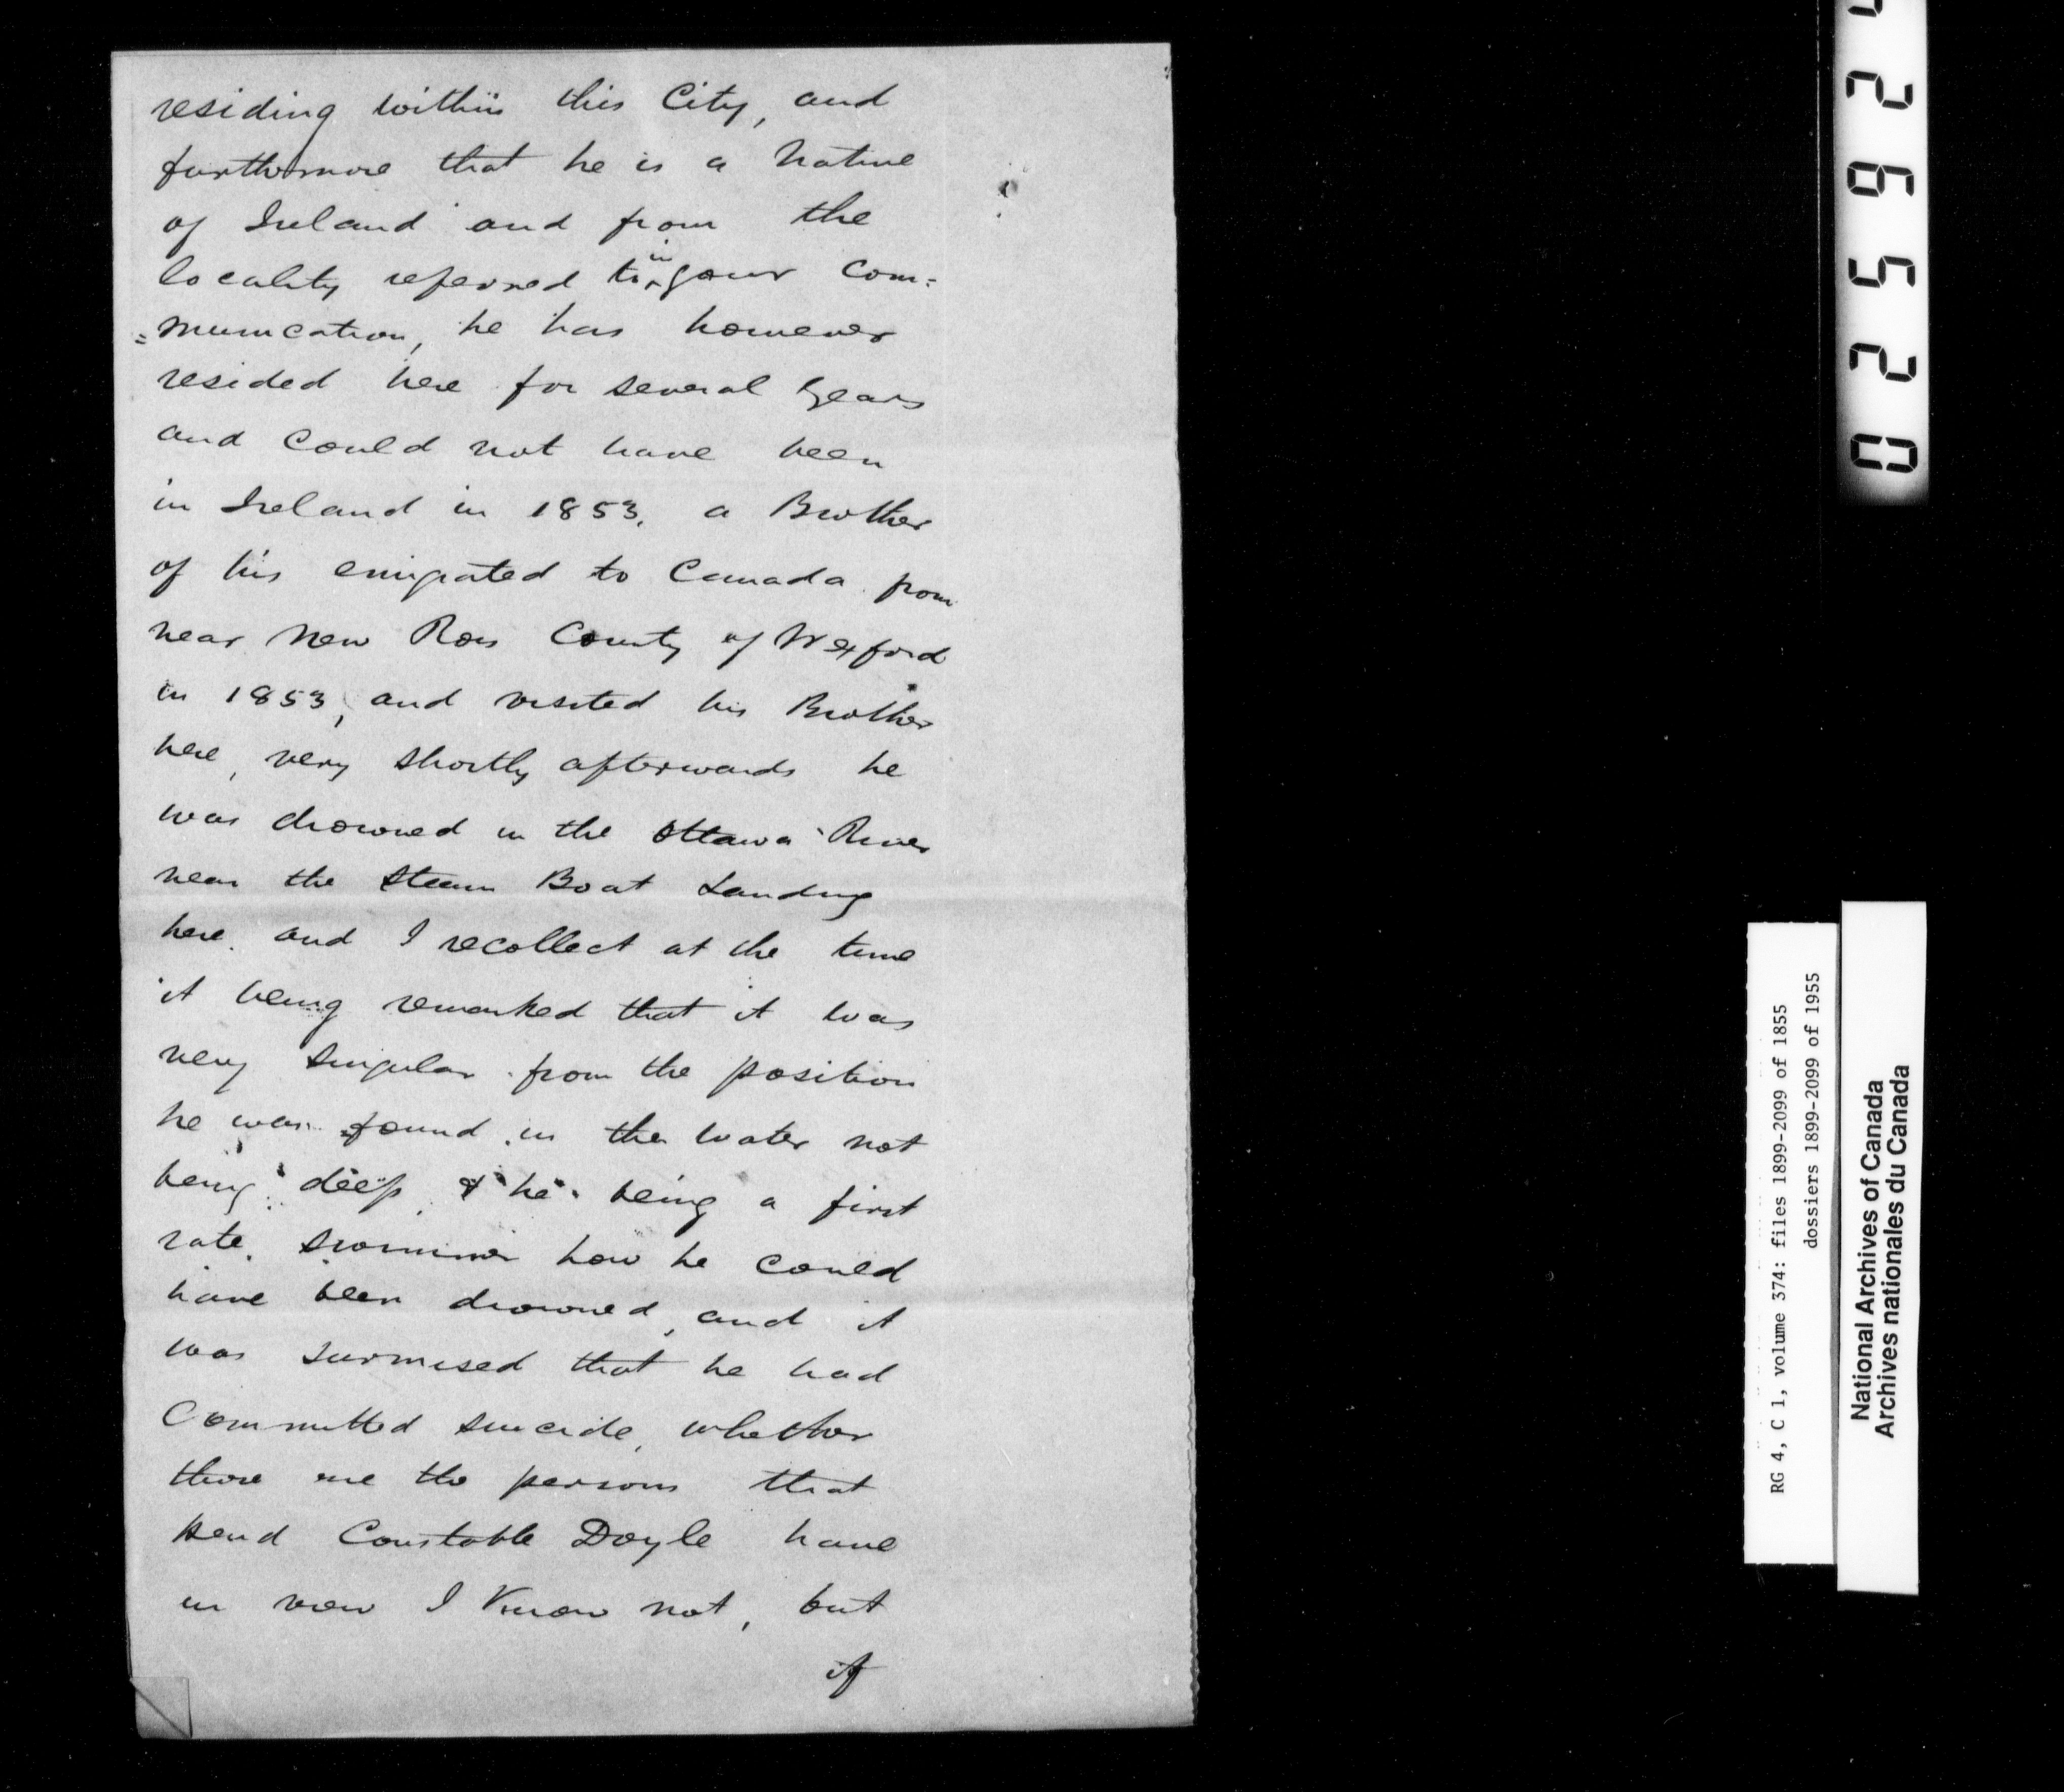 residing within this City, and
furthermore that he is a native
of Ireland and from the
locality referred to in your Com=
=munication, he has however
resided here for several years
and could not have been
in Ireland in 1853, a Brother
of his emigrated to Canada from
near New Ross County of Wexford
in 1853, and visited his Brother
here, very shortly afterwards he
was drowned in the Ottawa River
near the Steam Boat Landing
here. and I recollect at the time
it being remarked that it was
very singular from the position
he was found in the water not
being deep, & he being a first
rate swimmer how he could
have been drowned, and it
was surmised that he had
Committed suicide, whether
those are the persons that
Head Constable Doyle have
in view I know not, but
if
025924
RG 4, C 1, volume 374: files 1899-2099 of 1855
dossiers 1899-2099 of 1955
National Archives of Canada
Archives nationales du Canada